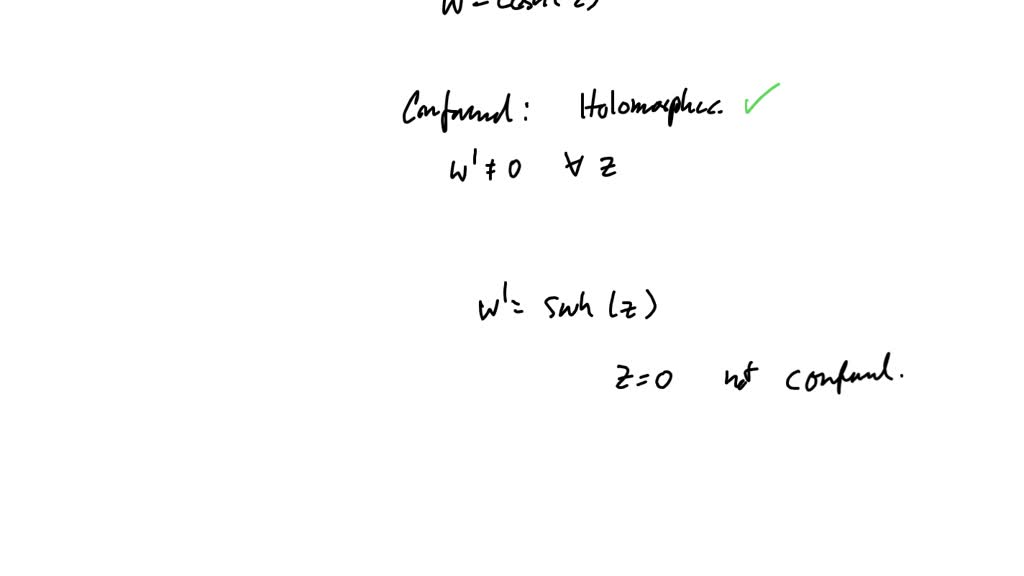 W = cosh(z)
Conformal: Holomorphic. ✓
w' ≠ 0 ∀ z
w' = sinh (z)
z = 0 not conformal.